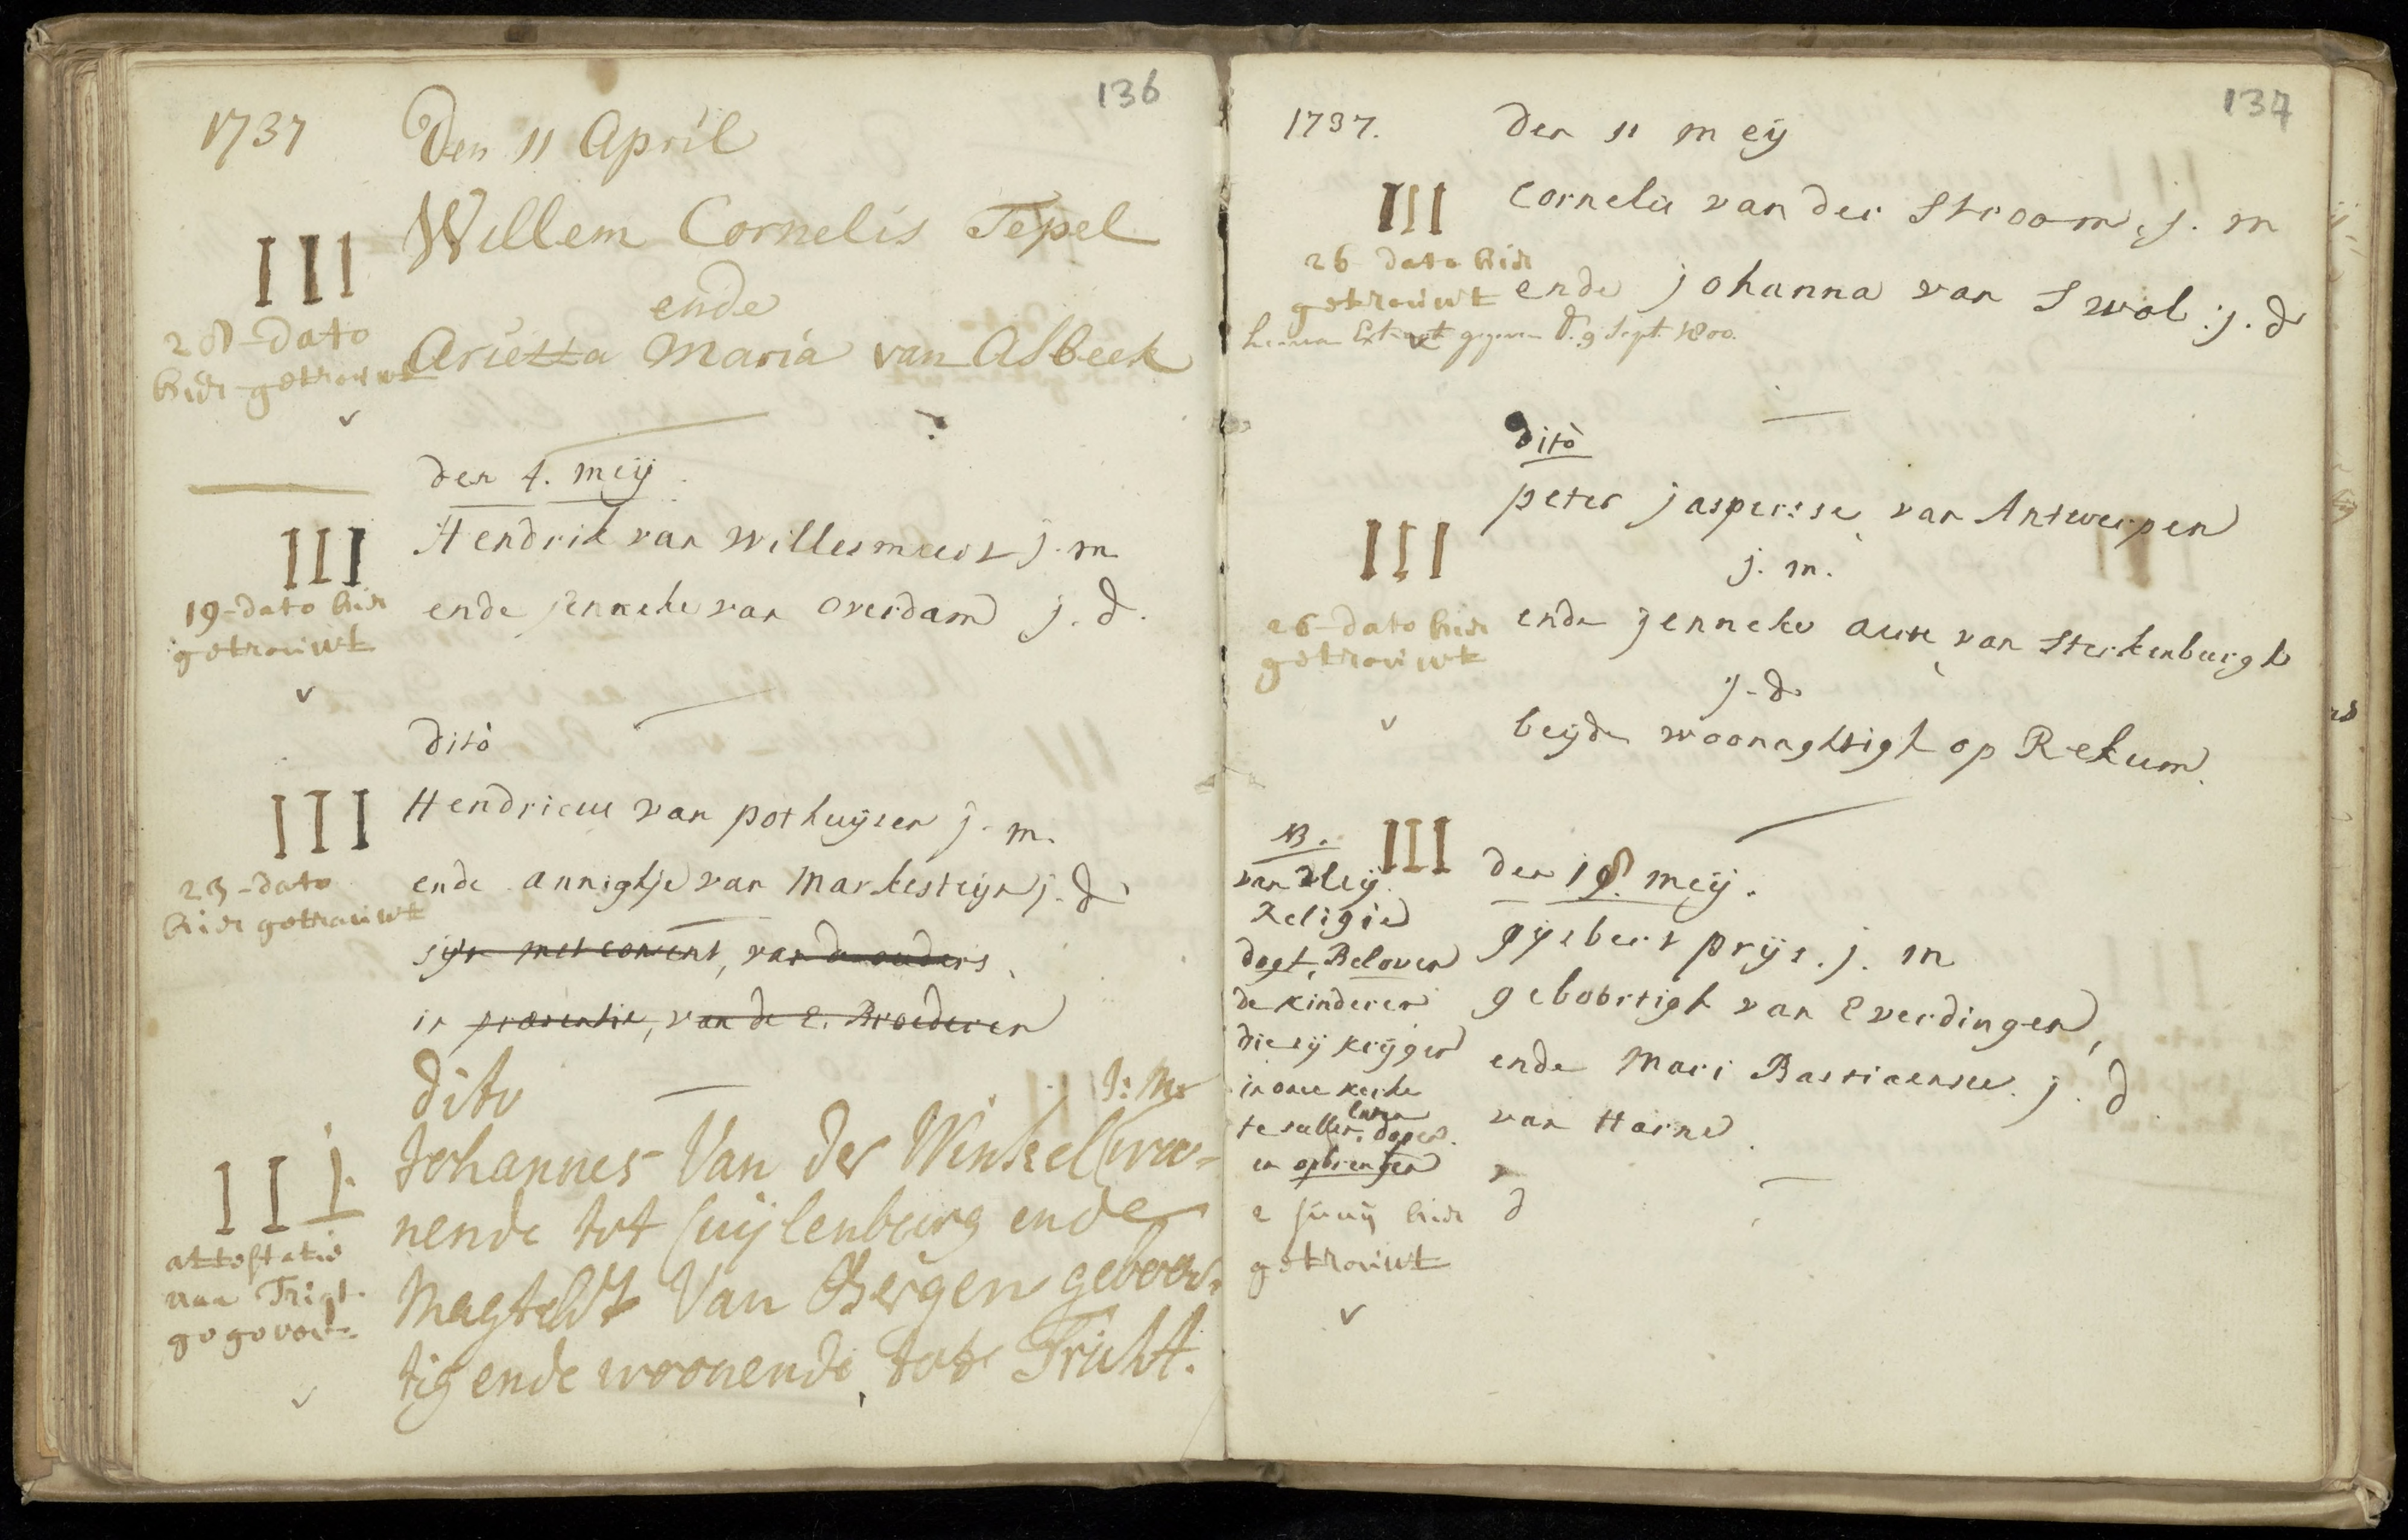 136
1737
Den 11 April
Willem Cornelis Tepel
ende
Arietta Maria van Asbeek
III
28 dato
hier getrouwt
den 4. meij
Hendrik van Willesmeert j. m
ende jenneke van overdam j. d.
III
19-dato hier
getrouwt
dito
Hendricus van pothuijsen j. m.
ende annighje van Markesteijn j. d.
III
23-dato
hier getrouwt
sijn met consent, van de ouders
in praesentie, van de E. Broederen
dito
J: M:
Johannes Van der Winkel woo-
nende tot Cuijlenburg ende
Magteldt Van Bergen geboor-
tig ende woonende, tot Tricht.
III
attestatie
naa Trigt
gegeven
137
1737.
den 11 meij
Cornelis van der Stroom, j. m
ende johanna van Swol. j. d
III
26 dato hier
getrouwt
hiervan Extract gegeven d. 9 Sept. 1800.
dito
peter jasperse, van Antwerpen
j. m.
ende jenneke van Sterkenburgh
j. d.
beijde woonaghtigh op Rekum.
III
26-dato hier
getrouwt
den 18. meij.
gijsbert prijs. j. m
geboortigh van Everdingen,
ende Mari Bastiaense. j. d
van Harne.
III
NB.
Religie
dogt, Beloven
de kinderen
die sij krijgen
in onse kerke
te sullen laten dopen.
en opbrengen
2 Junij hier
getrouwt